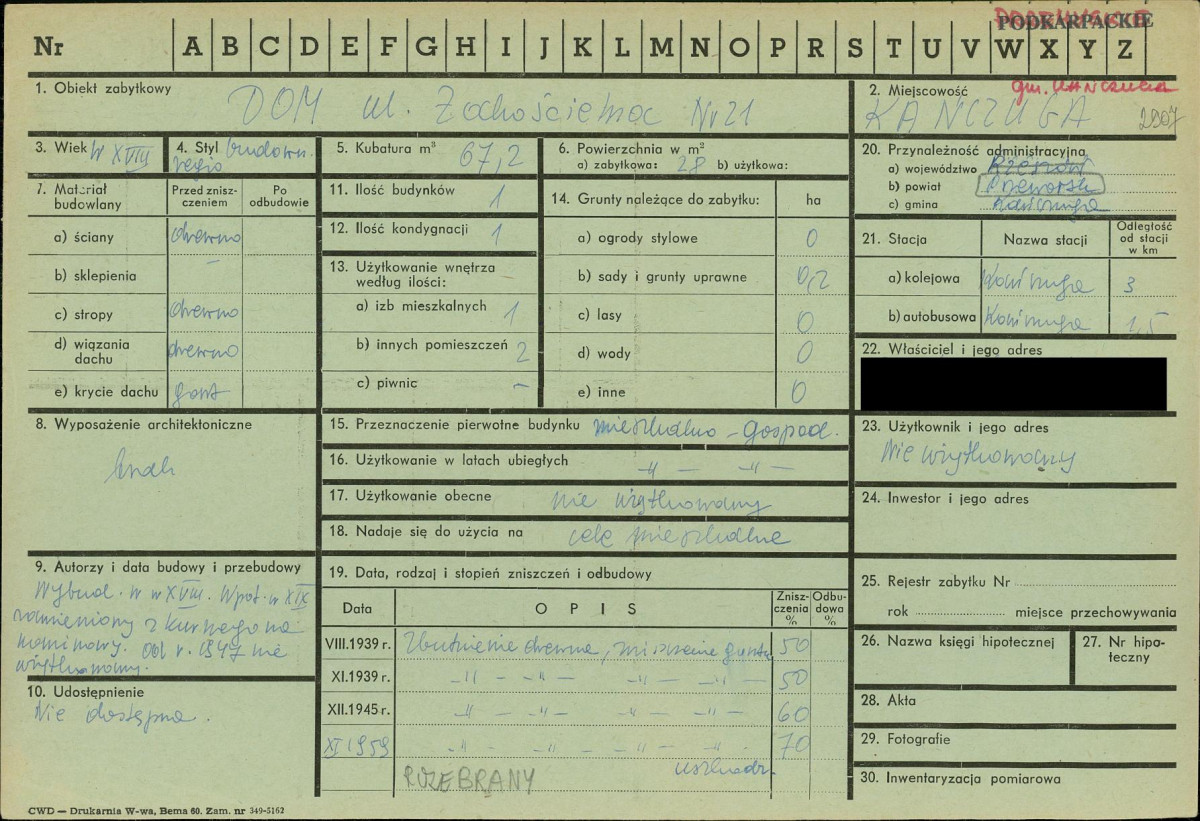 PODKARPACKIE
Nr A B C D E F G H I J K L M N O P R S T U V W X Y Z
gm. KAŃCZUGA
1. Obiekt zabytkowy
DOM ul. Nr 21
2. Miejscowość
KAŃCZUGA 2907
3. Wiek w XVIII
4. Styl budown.
regio
5. Kubatura m³ 67,2
6. Powierzchnia w m²
a) zabytkowa: 28 b) użytkowa:
20. Przynależność administracyjna
a) województwo Rzeszów
b) powiat Przeworsk
c) gmina Kańczuga
7. Materiał budowlany
Przed zniszczeniem
Po odbudowie
a) ściany drewno
b) sklepienia –
c) stropy drewno
d) wiązania dachu drewno
e) krycie dachu gont
11. Ilość budynków 1
12. Ilość kondygnacji 1
13. Użytkowanie wnętrza
według ilości:
a) izb mieszkalnych 1
b) innych pomieszczeń 2
c) piwnic –
14. Grunty należące do zabytku: ha
a) ogrody stylowe 0
b) sady i grunty uprawne 0,2
c) lasy 0
d) wody 0
e) inne 0
21. Stacja
Nazwa stacji
Odległość od stacji w km
a) kolejowa Kańczuga 3
b) autobusowa Kańczuga 1,5
22. Właściciel i jego adres
8. Wyposażenie architektoniczne
brak
15. Przeznaczenie pierwotne budynku mieszkalno – gospod.
16. Użytkowanie w latach ubiegłych –"– –"–
17. Użytkowanie obecne nie użytkowany
18. Nadaje się do użycia na cele mieszkalne
23. Użytkownik i jego adres
Nie użytkowany
24. Inwestor i jego adres
9. Autorzy i data budowy i przebudowy
Wybud. w w XVIII. W poł. w XIX
zamieniony z kurnego na
kominowy. Od r. 1947 nie
użytkowany.
10. Udostępnienie
Nie dostępna.
19. Data, rodzaj i stopień zniszczeń i odbudowy
Data
OPIS
Zniszczenia %
Odbudowa %
VIII.1939 r. Zbutwienie drewna, 50
XI.1939 r. –"– –"– –"– –"– 50
XII.1945 r. –"– –"– –"– –"– 60
XI 1959 –"– –"– –"– –"– 70
ROZEBRANY
25. Rejestr zabytku Nr
rok miejsce przechowywania
26. Nazwa księgi hipotecznej
27. Nr hipoteczny
28. Akta
29. Fotografie
30. Inwentaryzacja pomiarowa
CWD — Drukarnia W-wa, Bema 60. Zam. nr 349-5162